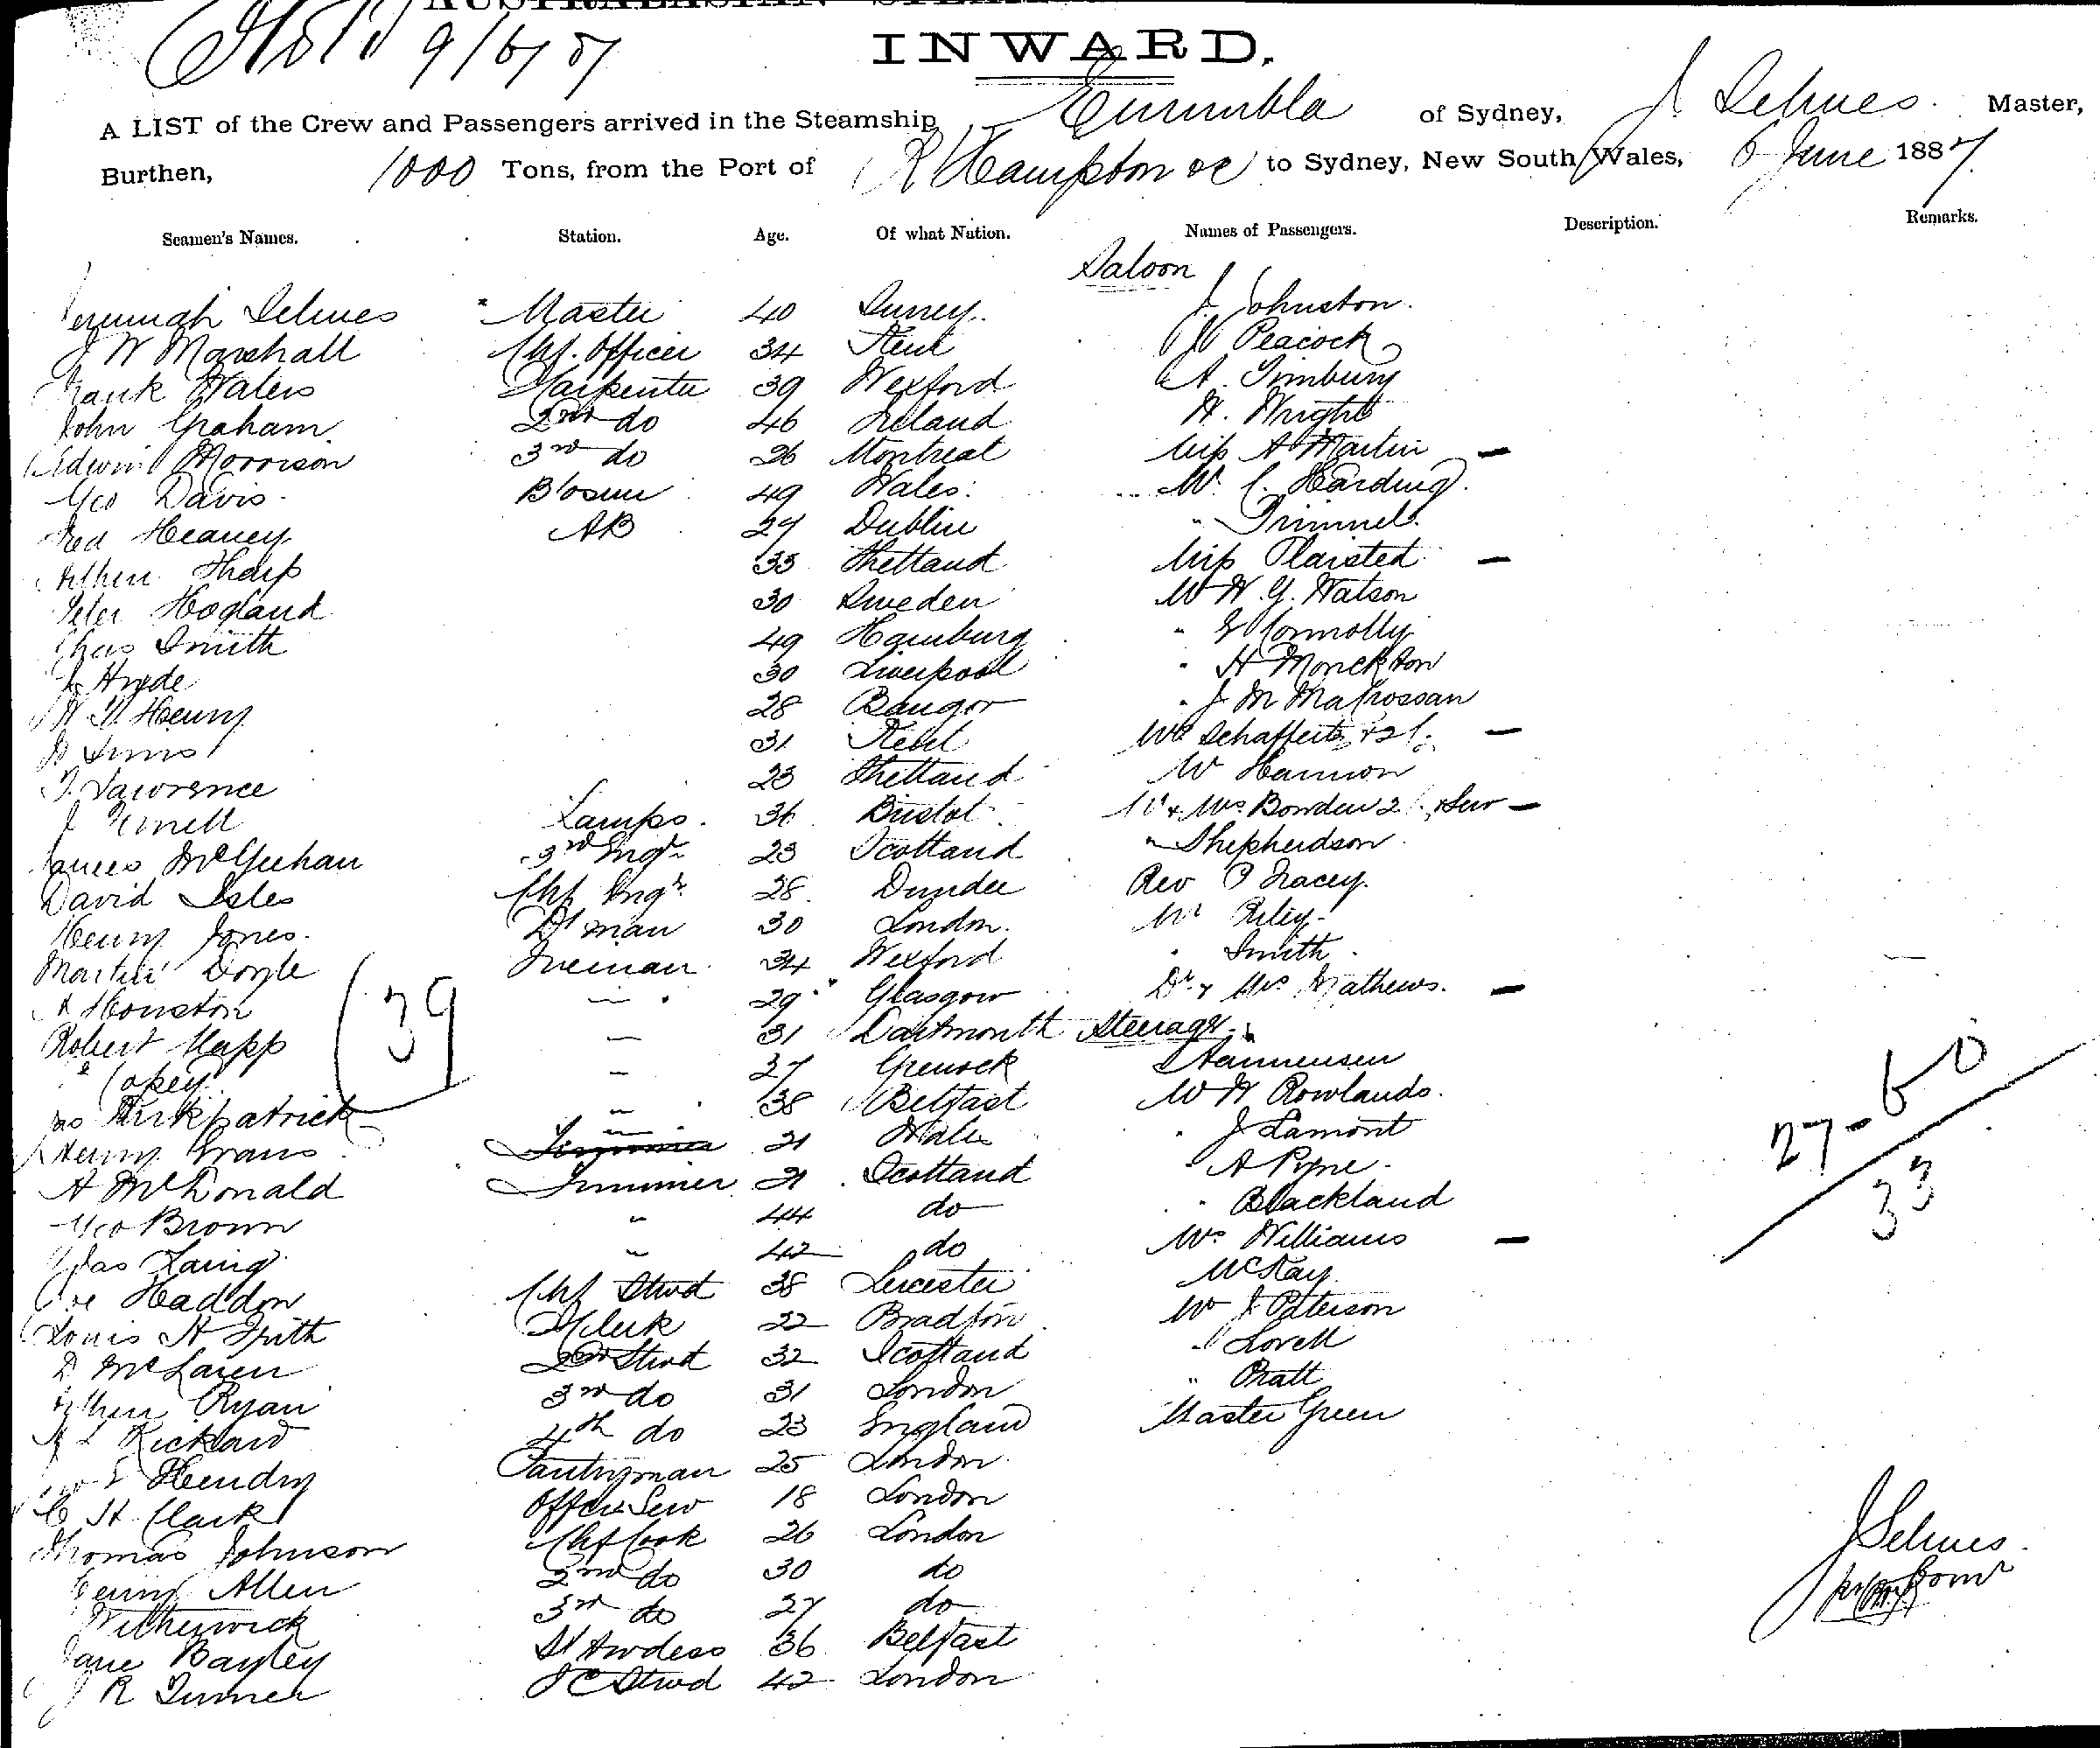 INWARD.
9/6/87
A LIST of the Crew and Passengers arrived in the Steamship Eurimbla of Sydney, J Selmes. Master,
Burthen, 1000 Tons, from the Port of R'Hampton &c to Sydney, New South Wales, 6 June 1887.
Seamen's Names. Station. Age. Of what Nation. Names of Passengers. Description. Remarks.
Saloon
Jeremiah Selmes Master 40 Surrey. J Johnston.
J W Marshall Chf. Officer 34 Kent W Peacock
Frank Waters Carpenter 39 Wexford A. Timbury
John Graham 2nd do 46 Ireland H. Wright
Edwin Morrison 3rd do 26 Montreal Miss A Martin —
Geo Davis. Bosun 49 Wales. Mr. C. Harding.
Fred Heaney AB 27 Dublin " Trimnel.
Arthur Sharp 33 Shetland Miss Plaisted —
Peter Hogland 30 Sweden Mr W. G. Watson
Chas Smith 49 Hamburg " Connolly
J Hyde 30 Liverpool " H Monckton
Henry 28 Bangor " J M Macrossan
Sims 31 Kent Schaffert & 2 C. —
T. Lawrence 23 Shetland Mr Hannon
J Lamps. 36 Bristol Mr & Mrs Bowden 2 C. & Serv —
James McGeehan 3rd Engr 23 Scotland " Shepherdson
David Isles Chf Engr. 28 Dundee Rev P Tracey.
Henry Jones. D'man 30 London. Mr Riley
Martin Doyle Fireman. 34 Wexford " Smith
A Houston — 29 Glasgow Dr. & Mrs Mathews. —
Robert Mapp — 31 Dartmouth Steerage
Copey — 37 Greenock Hannensen
Jas Kirkpatrick " 38 Belfast Mr W Rowlands.
39
Henry Evans " 21 Wales " J Lamont
A McDonald Trimmer 21 Scotland " A Pyne
Geo Brown " 44 do " Blackland
Chas Laing " 42 do Mrs Williams —
Geo Haddon Chf Stwd 38 Leicester McKay.
Louis H Frith Clerk 22 Bradford Mr J Paterson
D McLaren 2nd Stwd 32 Scotland " Lovell
Arthur Ryan 3rd do 31 London " Pratt
Rickard 4th do 23 England Master Green
Hendry Pantryman 25 London
C H. Clark Officers Serv 18 London
Thomas Johnson Chf Cook 26 London
Henry Allen 2nd do 30 do
Witherwick 3rd do 27 do
Jane Bayley Stwdess 36 Belfast
J R Turner F C Stwd 42 London
27-60
33
J Selmes.